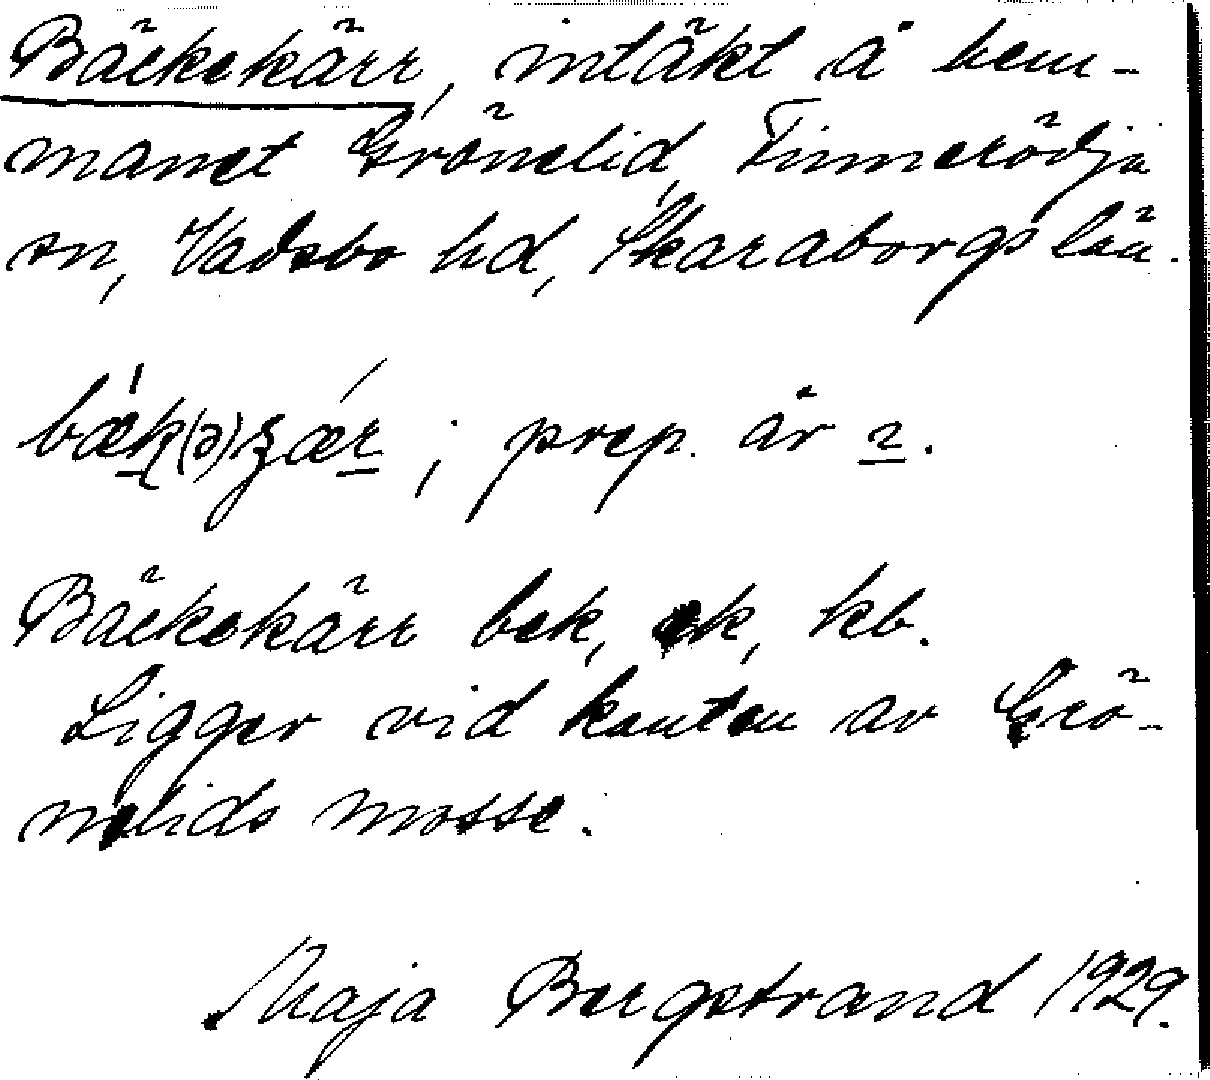 Bäckekärr, intäkt å hem-
manet Grönelid, Finnerödja
sn, Vadsbo hd, Skaraborgs län.
bæk(ə)ʒær ; prep. är ɿ.
Bäckekärr bek, ek, kb.
Ligger vid kanten av Grö-
nelids mosse.
Maja Bergstrand 1929.